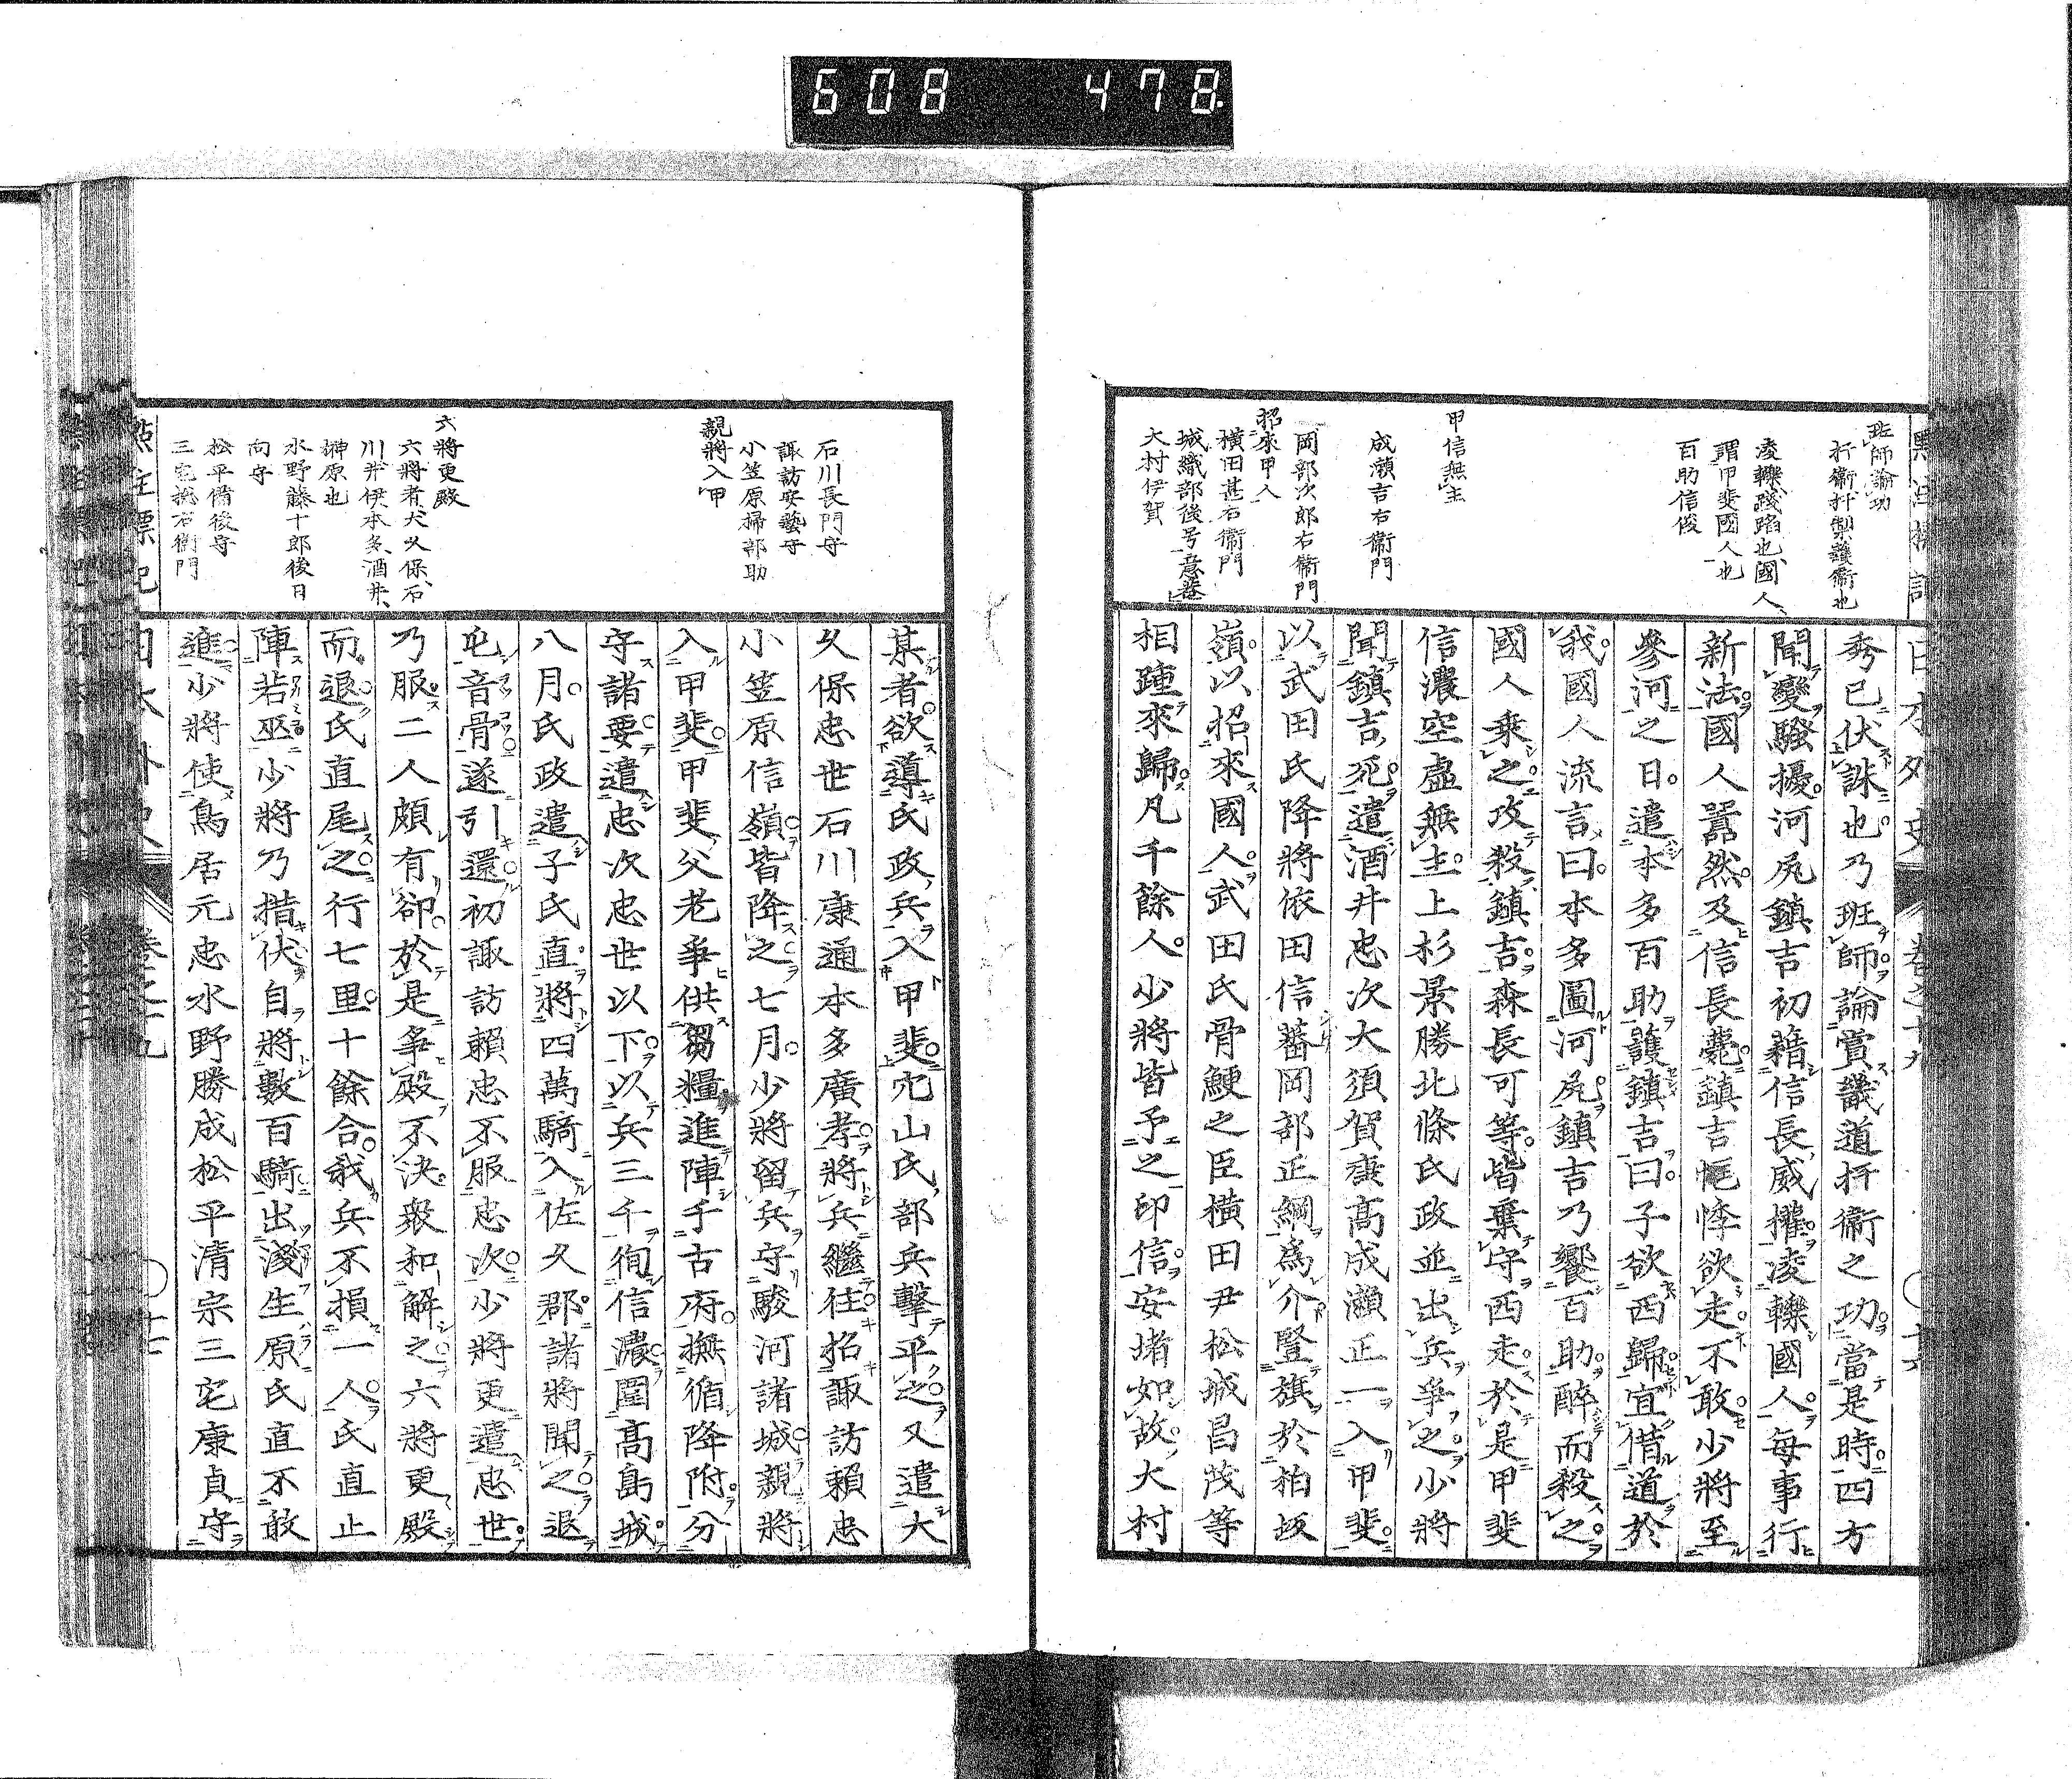 608 478.
班師論功
扞衞扞禦護衞也
凌轢踐蹈也、國人、
謂甲斐國人也
百助信俊
甲信無主
成瀬吉右衞門
岡部次郎右衞門
招來甲人
橫田甚右衞門
城織部後号意菴
大村伊賀
日本外史 卷之十九
秀已伏誅也乃班師論賞議道扞衞之功當是時四方
聞變騷擾河尻鎮吉初藉信長威權凌轢國人每事行
新法國人囂然及信長薨鎮吉恇悸欲走不敢少將至
參河之日遣本多百助護鎮吉曰子欲西歸宜借道於
我國人流言曰本多圖河尻鎮吉乃饗百助醉而殺之
國人乘之攻殺鎮吉森長可等皆棄守西走於是甲斐
信濃空虛無主上杉景勝北條氏政並出兵爭之少將
聞鎮吉死遣酒井忠次大須賀康高成瀬正一入甲斐
以武田氏降將依田信蕃岡部正綱爲介豎旗於柏坂
嶺以招來國人武田氏骨鯁之臣橫田尹松城昌茂等
相踵來歸凡千餘人少將皆予之印信安堵如故大村
石川長門守
諏訪安藝守
小笠原掃部助
親將入甲
六將更殿
六將者大久保、石
川、井伊、本多、酒井、
榊原也
水野藤十郎後日
向守
松平備後守
三宅惣右衞門
某者欲導氏政兵入甲斐穴山氏部兵擊平之又遣大
久保忠世石川康通本多廣孝將兵繼往招諏訪賴忠
小笠原信嶺皆降之七月少將留兵守駿河諸城親將
入甲斐甲斐父老爭供芻糧進陣于古府撫循降附分
守諸要遣忠次忠世以下以兵三千徇信濃圍高島城
八月氏政遣子氏直將四萬騎入佐久郡諸將聞之退
屯音骨遂引還初諏訪賴忠不服忠次少將更遣忠世
乃服二人頗有卻於是爭殿不決衆和解之六將更殿
而退氏直尾之行七里十餘合我兵不損一人氏直止
陣若巫少將乃措伏自將數百騎出淺生原氏直不敢
進少將使鳥居元忠水野勝成松平清宗三宅康貞守
點註標記 日本外史 卷之十九